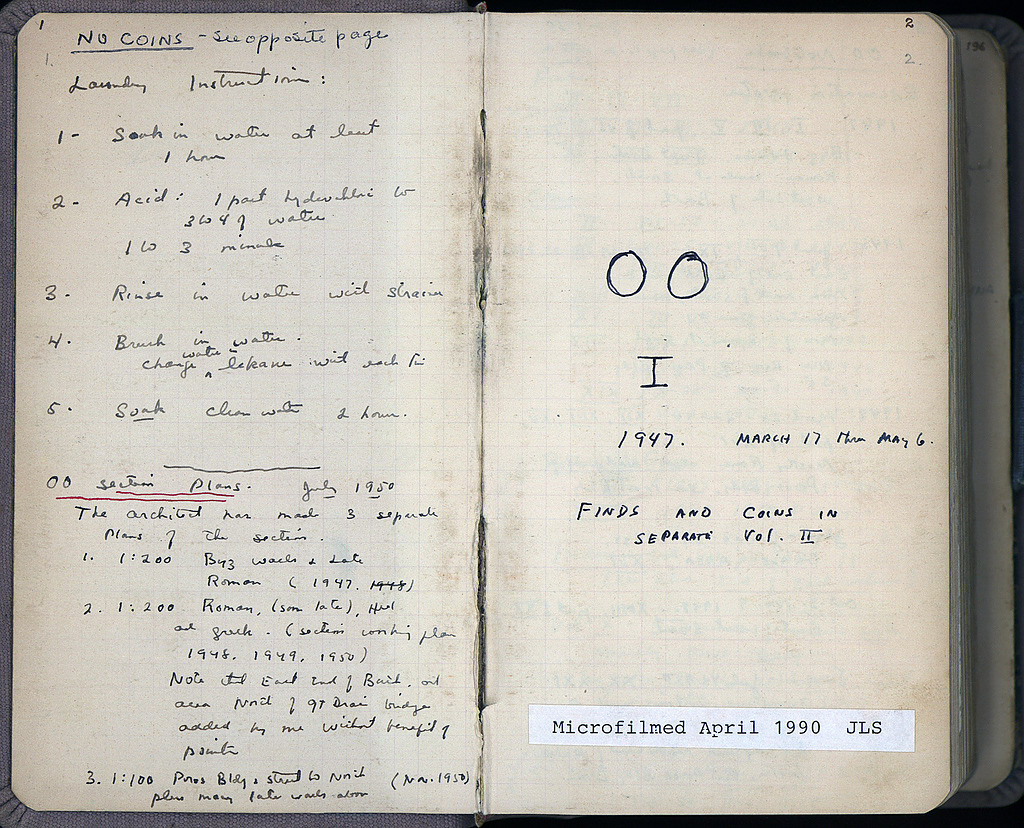 1
1.
NO COINS - see opposite page
Laundry Instructions:
1- Soak in water at least
1 hour
2- Acid: 1 part hydrochloric to
3 to 4 of water
1 to 3 minutes
3. Rinse in water with strainer
4. Brush in water.
water
change lekane with each tin
5. Soak clean water 2 hours.
OO section Plans. July 1950
The architect has made 3 separate
plans of the section.
1. 1:200 Byz walls & Late
Roman (1947. 1948)
2. 1:200 Roman, (some late), Hel.
and greek. (section working plan
1948. 1949. 1950)
Note that East End of Bath. and
area North of gt Drain bridge
added by me without benefit of
pointer
3. 1:100 Poros Bldg & street to North (Nov. 1950)
plus many later walls above
2
2.
OO
I
1947. MARCH 17 thru MAY 6.
FINDS AND COINS IN
SEPARATE VOL. II
Microfilmed April 1990 JLS
196